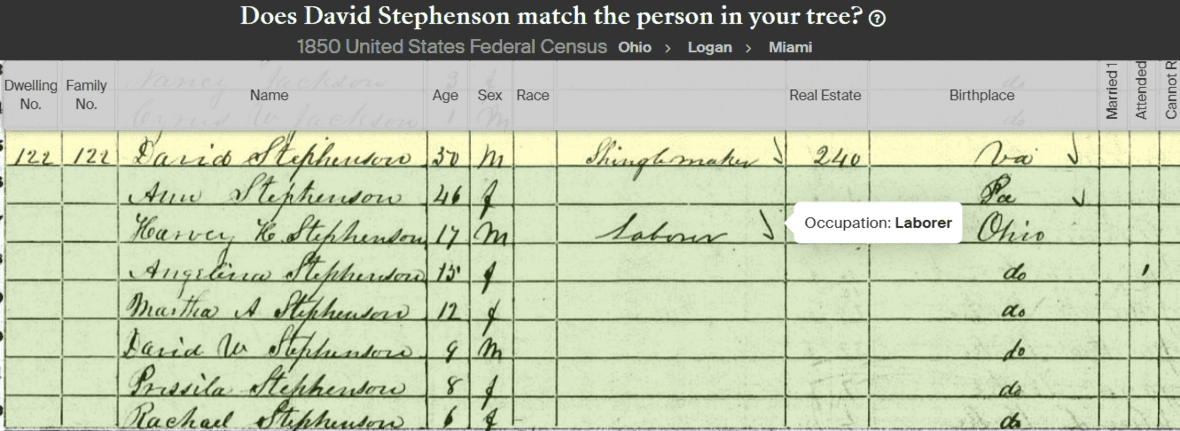 Does David Stephenson match the person in your tree? ?
1850 United States Federal Census Ohio > Logan > Miami
Dwelling No. Family No. Name Age Sex Race Real Estate Birthplace Married 1 Attended Cannot R
Nancy Jackson 3 f do
Cyrus W Jackson 1 M
122 122 David Stephenson 50 M Shinglemaker 240 Va
Ann Stephenson 46 f Pa
Harvey H. Stephenson 17 M Laborer Ohio
Occupation: Laborer
Angelina Stephenson 15 f do
Martha A Stephenson 12 f do
David W Stephenson 9 M do
Prissila Stephenson 8 f do
Rachael Stephenson 6 f do